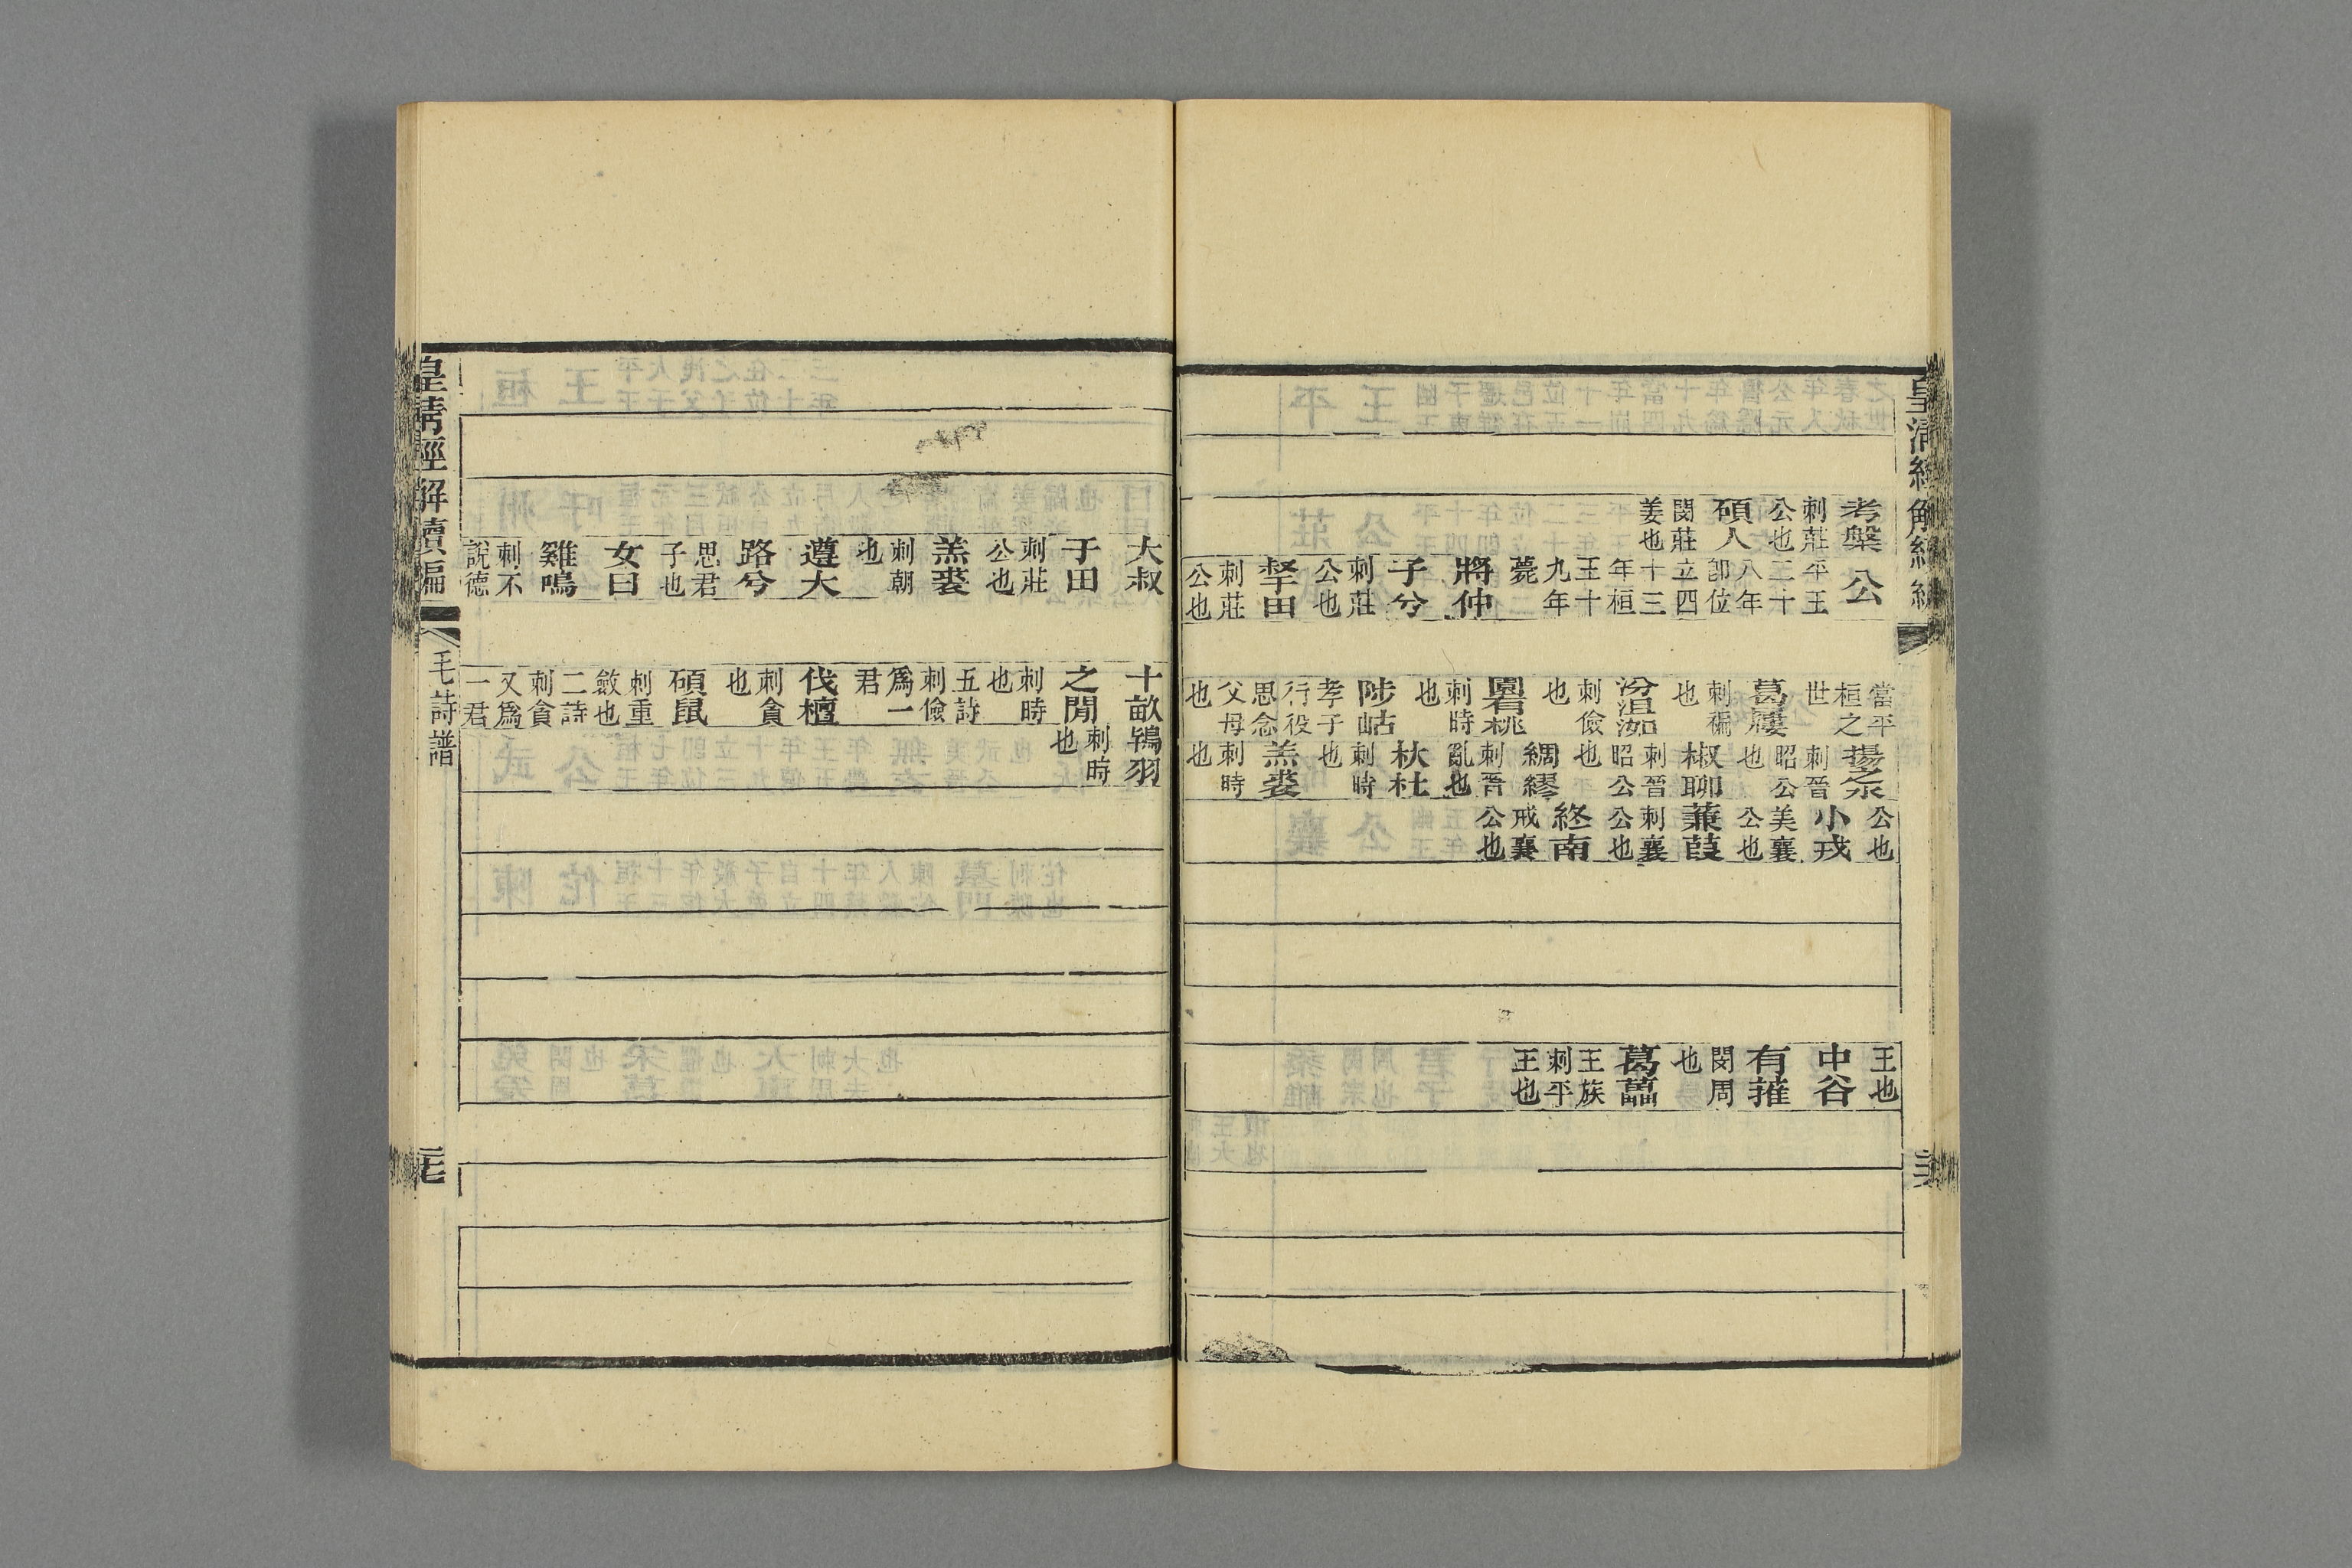 考槃
刺莊
公也
碩人
閔莊
姜也
公
平王
二十
八年
卽位
立四
十三
年桓
王十
九年
薨
將仲
子兮
刺莊
公也
叔于田
刺莊
公也
當平
桓之
世
葛屨
刺褊
也
汾沮洳
刺儉
也
園有桃
刺時
也
陟岵
孝子
行役
思念
父母
也
揚之水
刺晉
昭公
也
椒聊
刺晉
昭公
也
綢繆
刺晉
亂也
杕杜
刺時
也
羔裘
刺時
也
公也
小戎
美襄
公也
蒹葭
刺襄
公也
終南
戒襄
公也
王也
中谷
有蓷
閔周
也
葛藟
王族
刺平
王也
大叔
于田
刺莊
公也
羔裘
刺朝
也
遵大
路兮
思君
子也
女曰
雞鳴
刺不
說德
十畝
之閒
刺時
也
五詩
刺儉
爲一
君
伐檀
刺貪
也
碩鼠
刺重
斂也
二詩
刺貪
又爲
一君
鴇羽
刺時
也
皇清經解續編
毛詩譜